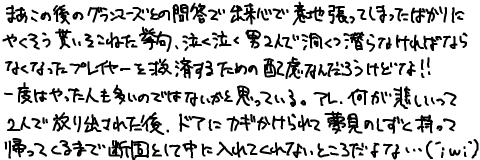 まあこの後のグランコーズとの問答で出来心で意地張ってしまったばかりに
やくそう貰いそこねた挙句、泣く泣く男2人で洞くつ潜らなければなら
なくなったプレイヤーを救済するための配慮なんだろうけどな!!
一度はやった人も多いのではないかと思っている。アレ、何が悲しいって
2人で放り出された後、ドアにカギかけられて夢見のしずく持って
帰ってくるまで断固として中に入れてくれないところだよな…(´;ω;`)